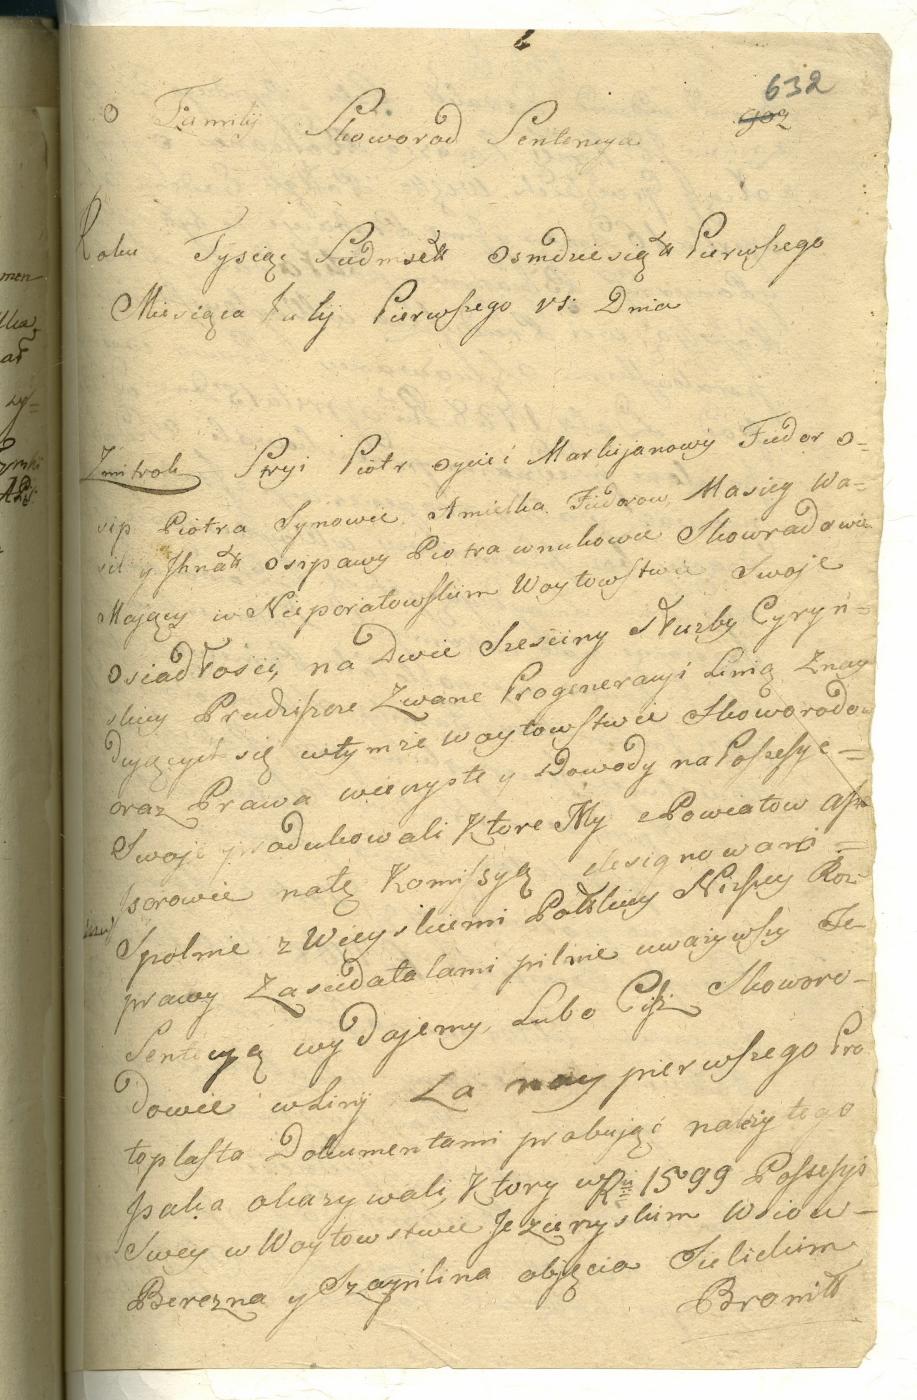 632
902
O Familij Skoworod Sentencya
Roku Tysiąc Siedmset Osmdziesiąt Pierwszego
Miesiąca Julij Pierwszego vs: Dnia
Zmitrok Stryi Piotr Oyciei Markijanowy Fiedor O-
sip Piotra Synowie, Amielka Fiedorow, Maciey Wa-
sil y Jhnat Osipawy Piotra wnukowie Skowradowie
Maiący w Nieporatowskim Woytowstwie Swoje
Osiadłości, na Dwie Sześciny służby Cyryn-
skiey Pradzisze Zwane Progeneracyi Linią Znay
duiących się wtymże Woytowstwie Skoworodow
oraz Prawa wieczyste y Dowody na Possesye
Swoje produkowali Ktore My z Powiatow Asse
sorowie natę Komissyą designowani
Spolnie z Woyskiemi Polskiey Niższey Roz
prawy Zasiadatelami pilnie uważywszy Te-
Sentencyą wydajemy, Lubo Ciż Skoworo-
dowie wLinij Za nay pierwszego Pro
toplasta Dokumentami probując należytego
okazywali, Ktory w R: 1599 Possesyi
Swey w Woytowstwie Jezierzyskim Wsiow
Berezna y Szapilina objęcia Sielickim
Bronitt